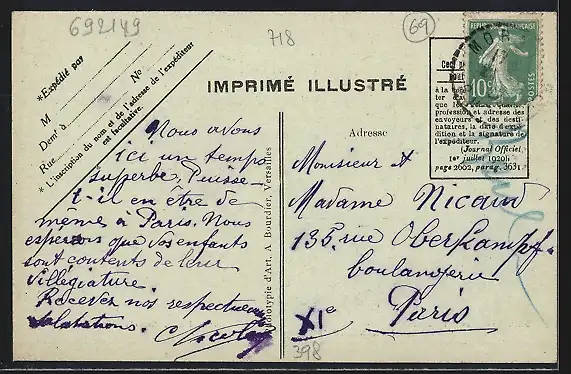 692149
718
69
*Expédié par
M
Demt à
Rue No
* L'inscription du nom et de l'adresse de l'expéditeur
est facultative.
IMPRIMÉ ILLUSTRÉ
Nous avons
ici un temps
superbe. Puisse-
t-il en être de
même à Paris. Nous
espérons que vos enfants
sont contents de leur
villégiature.
Recevez nos respectueuses
salutations.
Phototypie d'Art, A Bourdier, Versailles
REPUBLIQUE FRANÇAISE
10c
POSTES
Adresse
Monsieur et
Madame Nicain
135, rue Oberkampf
boulangerie
Paris
XIe
398
à la
ter
que les
profession et adresse des
envoyeurs et des desti-
nataires, la date d'expé-
dition et la signature de
l'expéditeur.
(Journal Officiel,
1er juillet 1920,
page 2602, parag. 363).